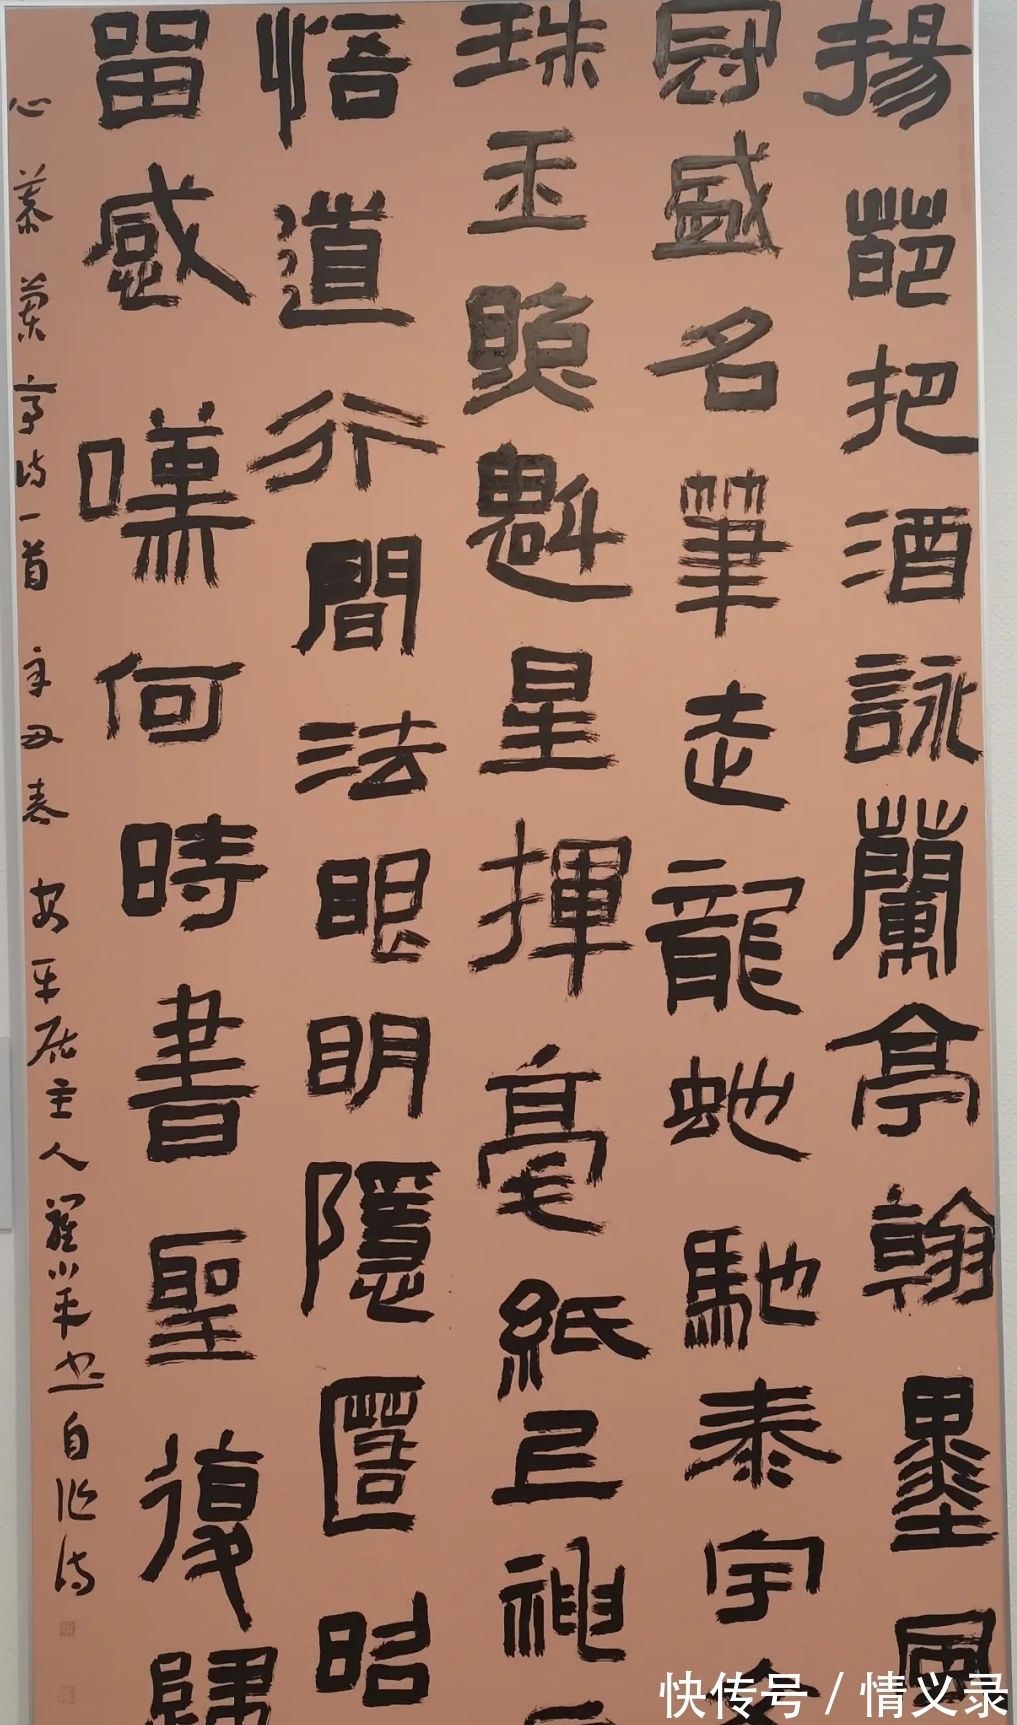 揚葩把酒詠蘭亭翰墨風
冠盛名筆走龍虵馳泰宇
珠玉顯魁星揮毫紙上神
悟道行間法眼明隱匿昭
留感嘆何時書聖復歸
心慕蘭亭詩一首 辛丑春 安平居主人 小平 自作詩
快传号 / 情义录